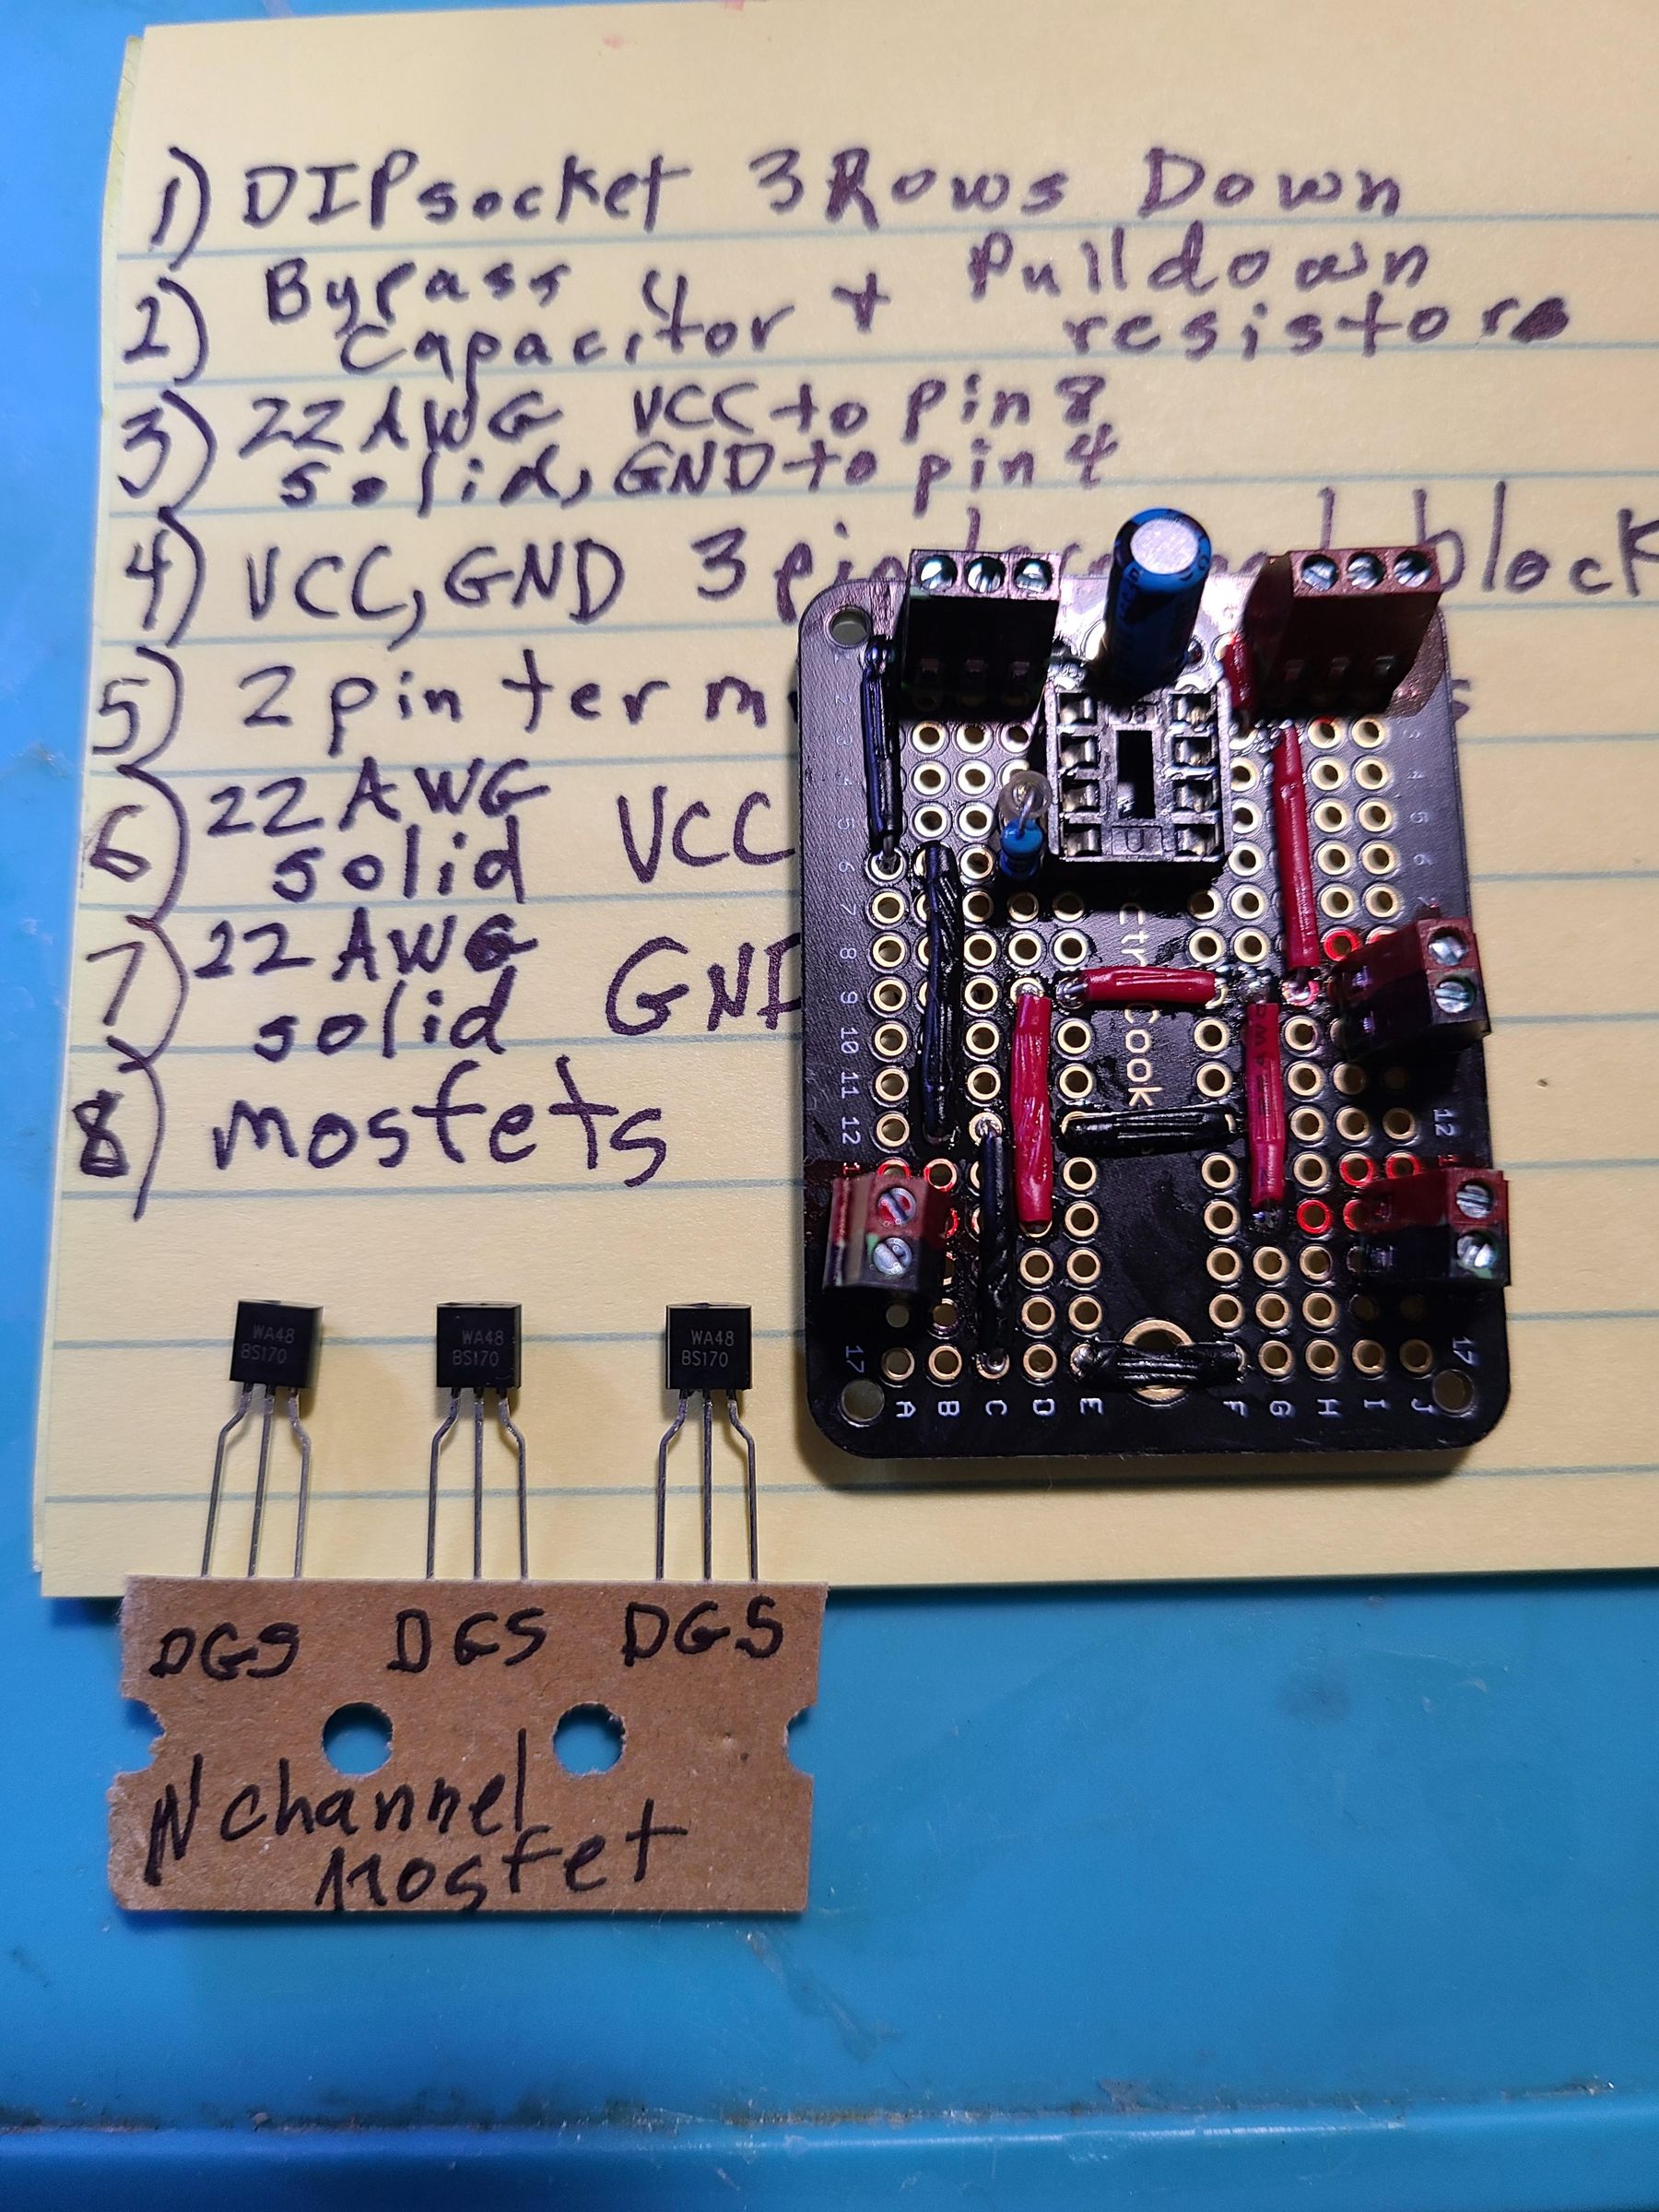 1) DIP socket 3 Rows Down
2) Bypass Capacitor + Pulldown resistors
3) 22 AWG VCC to pin 8
solid, GND to pin 4
4) VCC, GND 3 pin block
5) 2 pin term
6) 22 AWG solid VCC
7) 22 AWG solid GND
8) mosfets
WA48
BS170
WA48
BS170
WA48
BS170
DGS DGS DGS
N channel
Mosfet
2
3
4
5
6
7
8
9
10
11
12
17
3
4
5
6
12
17
Cook
A B C D E F G H I J